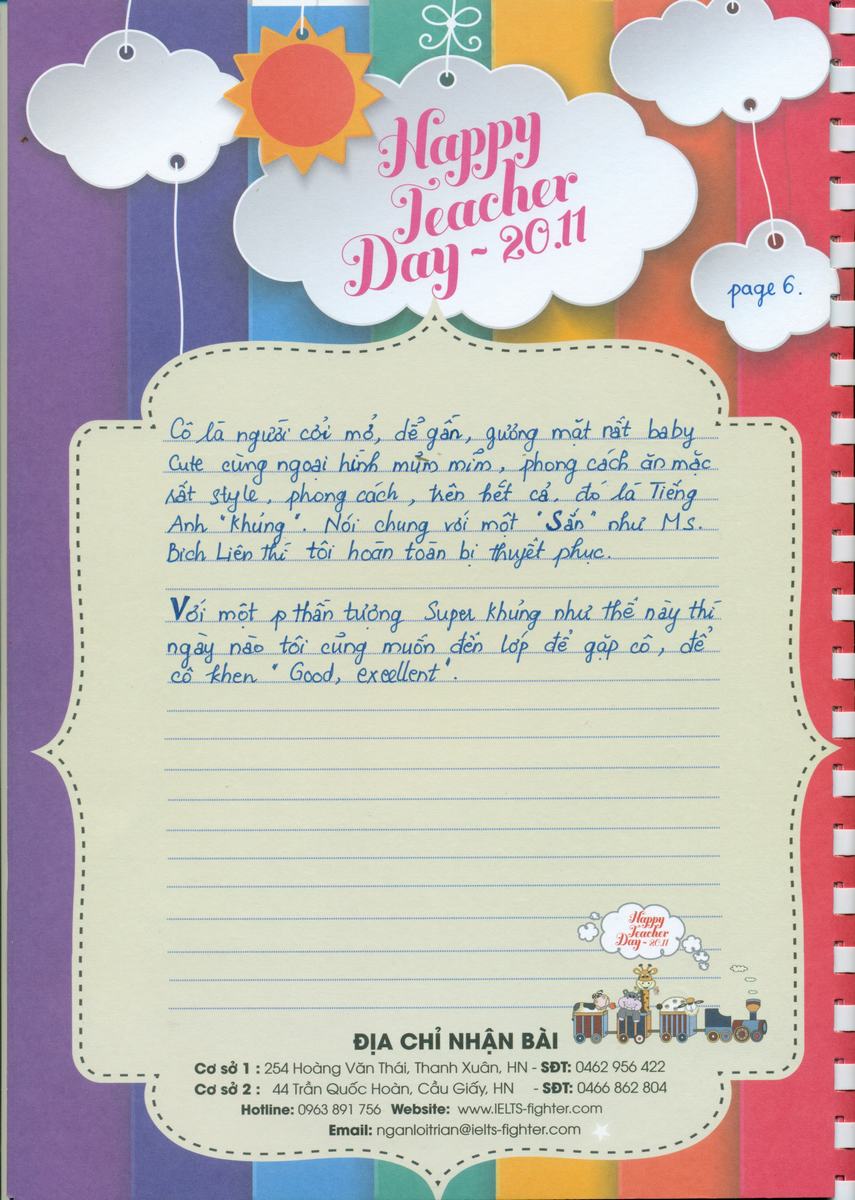 Happy
Teacher
Day ~ 20.11
page 6.
Cô là người cởi mở, dễ gần, gương mặt rất baby
Cute cùng ngoại hình mũm mĩm, phong cách ăn mặc
rất style, phong cách, trên hết cả, đó là Tiếng
Anh "khủng". Nói chung với một "Sắn" như Ms.
Bích Liên thì tôi hoàn toàn bị thuyết phục.
Với một p thần tượng Super khủng như thế này thì
ngày nào tôi cũng muốn đến lớp để gặp cô, để
cô khen "Good, excellent".
Happy
Teacher
Day ~ 20.11
ĐỊA CHỈ NHẬN BÀI
Cơ sở 1 : 254 Hoàng Văn Thái, Thanh Xuân, HN - SĐT: 0462 956 422
Cơ sở 2 : 44 Trần Quốc Hoàn, Cầu Giấy, HN - SĐT: 0466 862 804
Hotline: 0963 891 756 Website: www.IELTS-fighter.com
Email: nganloitrian@ielts-fighter.com